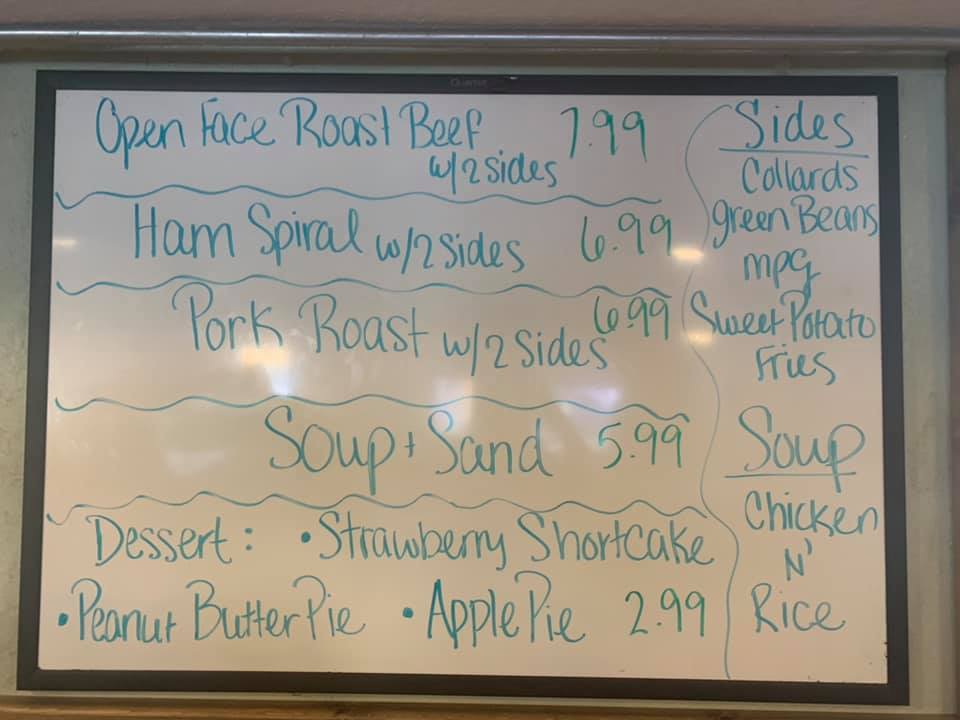 Quartet
Open Face Roast Beef 7.99
w/2 sides
Ham Spiral w/2 Sides 6.99
Pork Roast w/2 Sides 6.99
Soup + Sand 5.99
Dessert: • Strawberry Shortcake
• Peanut Butter Pie • Apple Pie 2.99
Sides
Collards
green Beans
mpg
Sweet Potato
Fries
Soup
Chicken
N'
Rice